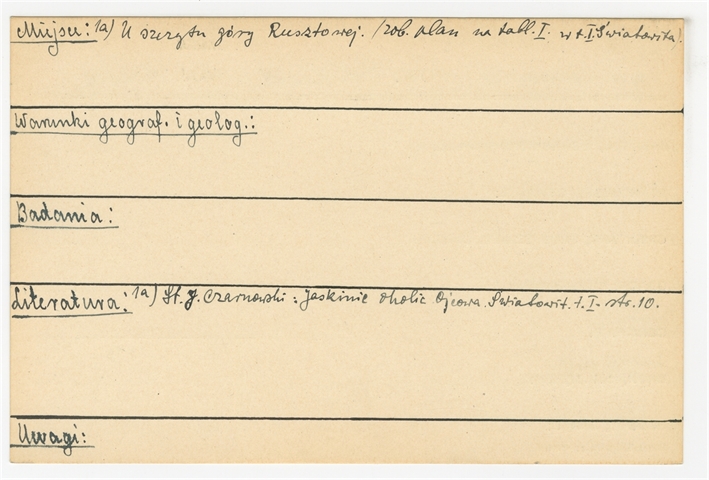 Miejsce: 1a) U szczytu góry Rusztowej. /zob. plan na tabl. I. w t. I. Światowita/.
Warunki geograf. i geolog.:
Badania:
Literatura: 1a) St. J. Czarnowski: Jaskinie okolic Ojcowa. Światowit. t. I. str. 10.
Uwagi: